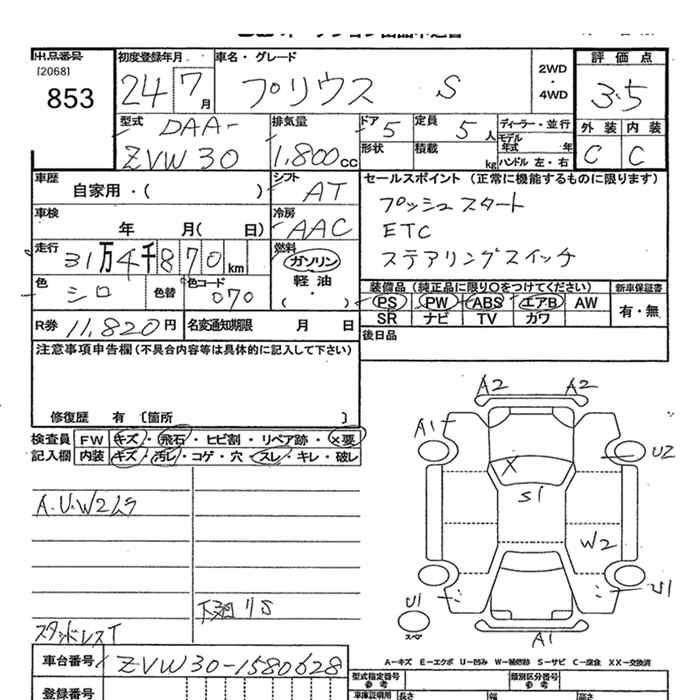 出品番号
[2068]
853
初度登録年月
24 7月
車名・グレード
プリウス S
2WD
・
4WD
評価点
3.5
外装 内装
C C
型式
DAA-
ZVW30
排気量
1,800cc
ドア 5
定員 5人
ディーラー・並行
モデル年式 年
形状
積載 kg
ハンドル 左・右
車歴
自家用・( )
シフト
AT
車検
年 月( 日)
冷房
AAC
走行
31万4千870km
燃料
ガソリン
軽油
( ・ )
色
シロ
色替
色コード
070
R券 11,820円
名変通知期限 月 日
セールスポイント (正常に機能するものに限ります)
プッシュスタート
ETC
ステアリングスイッチ
装備品(純正品に限り○をつけてください)
新車保証書
PS PW ABS エアB AW
有・無
SR ナビ TV カワ
後日品
注意事項申告欄(不具合内容等は具体的に記入して下さい)
修復歴 有 〔箇所 〕
検査員
記入欄
FW キズ・飛石・ヒビ割・リペア跡・×要
内装 キズ・汚レ・コゲ・穴・スレ・キレ・破レ
A.U.W2ムラ
下廻りS
スタッドレスT
A2 A2
A1
U2
X
S1
W2
U1
U1
スペア
A1
A-キズ E-エクボ U-凹み W-補修跡 S-サビ C-腐食 XX-交換済
車台番号 ZVW30-1580628
登録番号
型式指定番号
参考
類別区分番号
参考
車庫証明用 長さ 幅 高さ